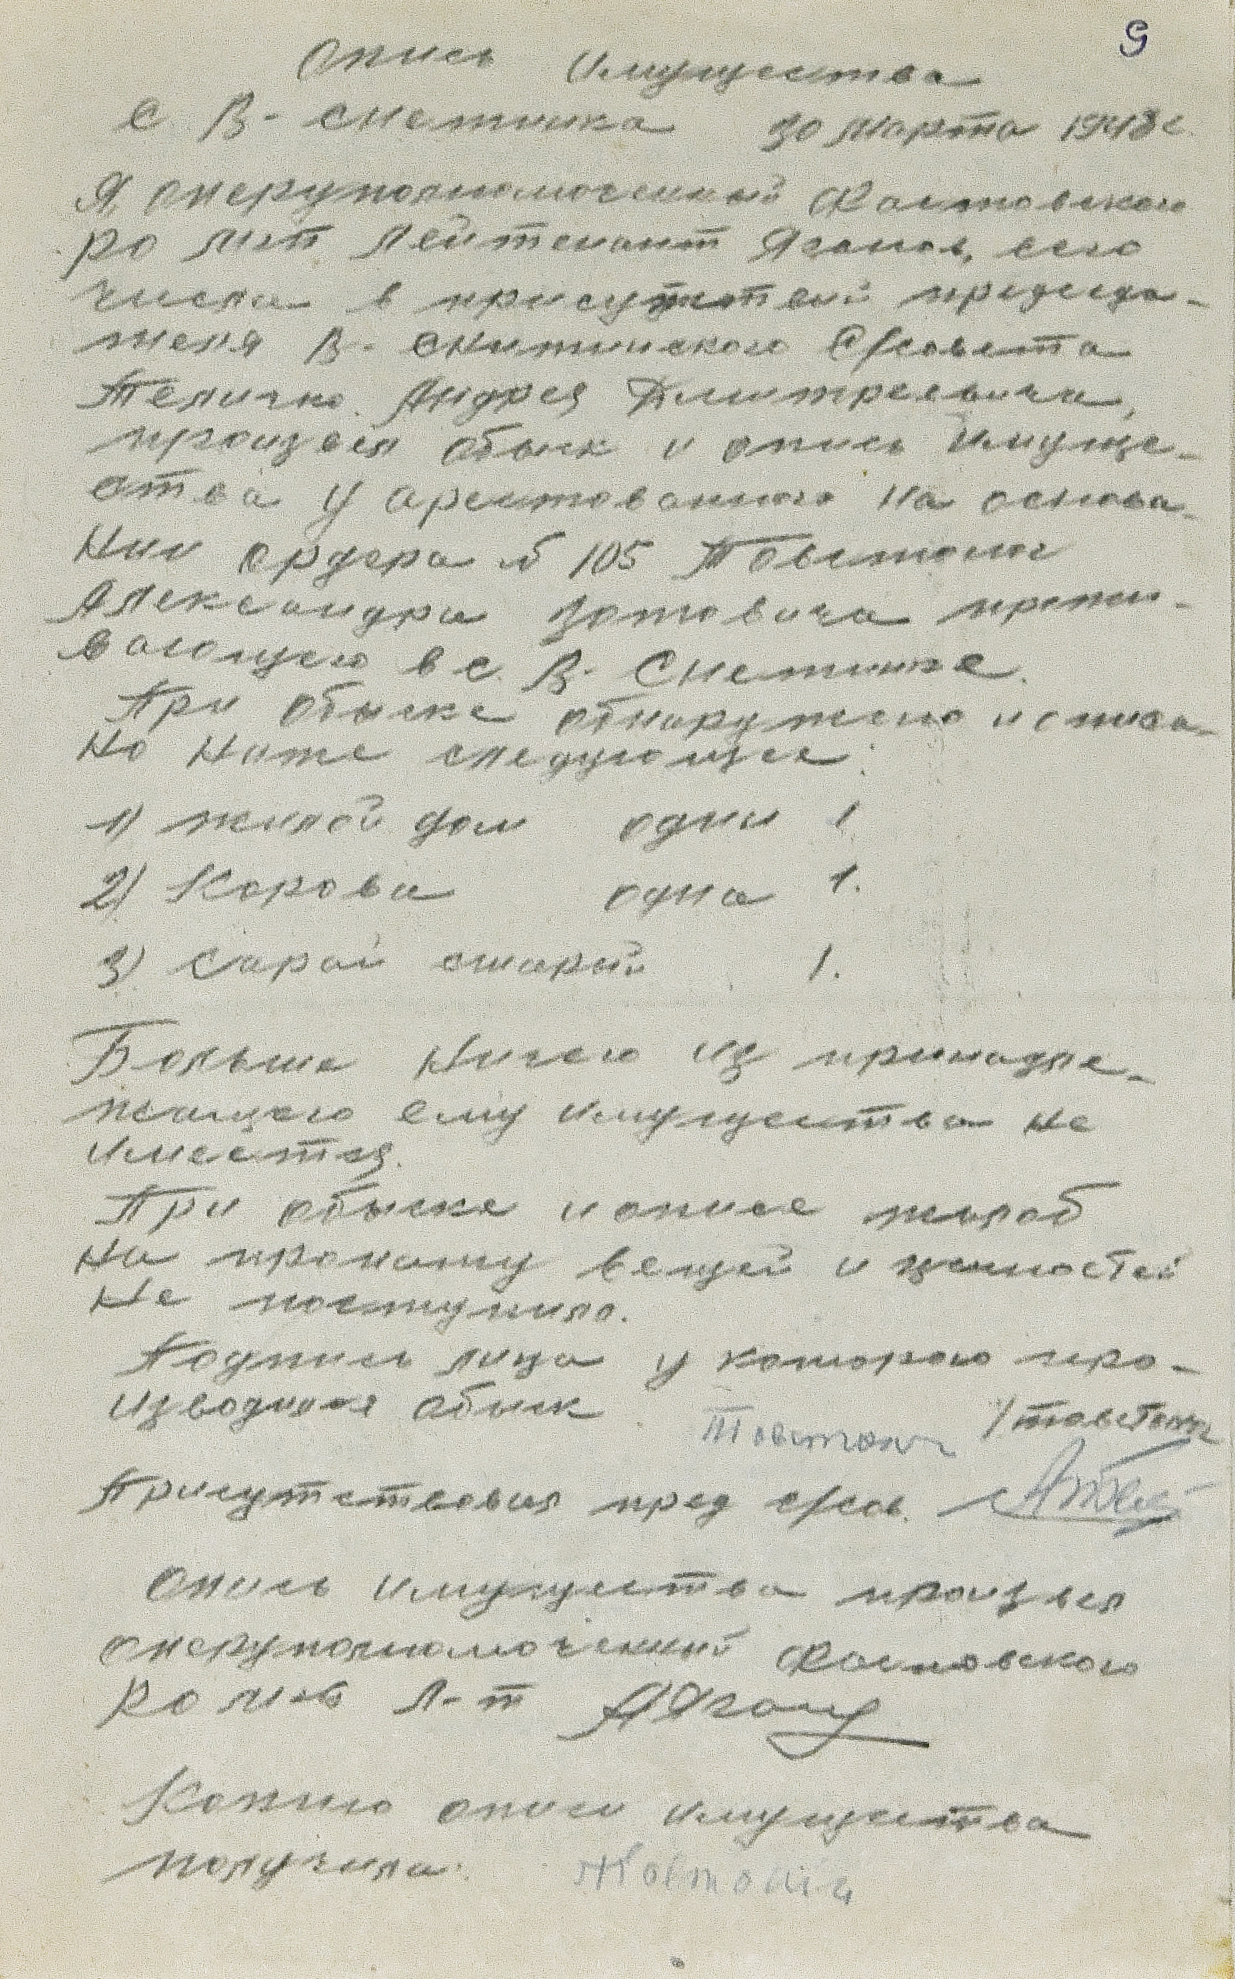 9
Опись имущества
с В-Снетинка 30 марта 1948 г.
Я, оперуполномоченный Фастовского
РО МГБ лейтенант Яганов, сего
числа в присутствии председа-
теля В-Снитинского С/совета
Теличко Андрея Дмитреевича,
произвел обыск и опись имуще-
ства у арестованного на основа-
нии ордера № 105 Товстоног
Александра Зотовича прожи-
вающего в с. В-Снетинке.
При обыске обнаружено и описа-
но ниже следующее:
1) жилой дом один 1
2) Корова одна 1.
3) Сарай старый 1.
Больше ничего из принадле-
жащего ему имущества не
имеется.
При обыске и описе жалоб
на пропажу вещей и ценностей
не поступило.
Подпись лица у которого про-
изводился обыск Товстоног /товстоног
Присутствовал пред с/сов.
Опись имущества произвел
оперуполномоченный Фастовского
РО МГБ л-т
Копию описи имущества
получила: